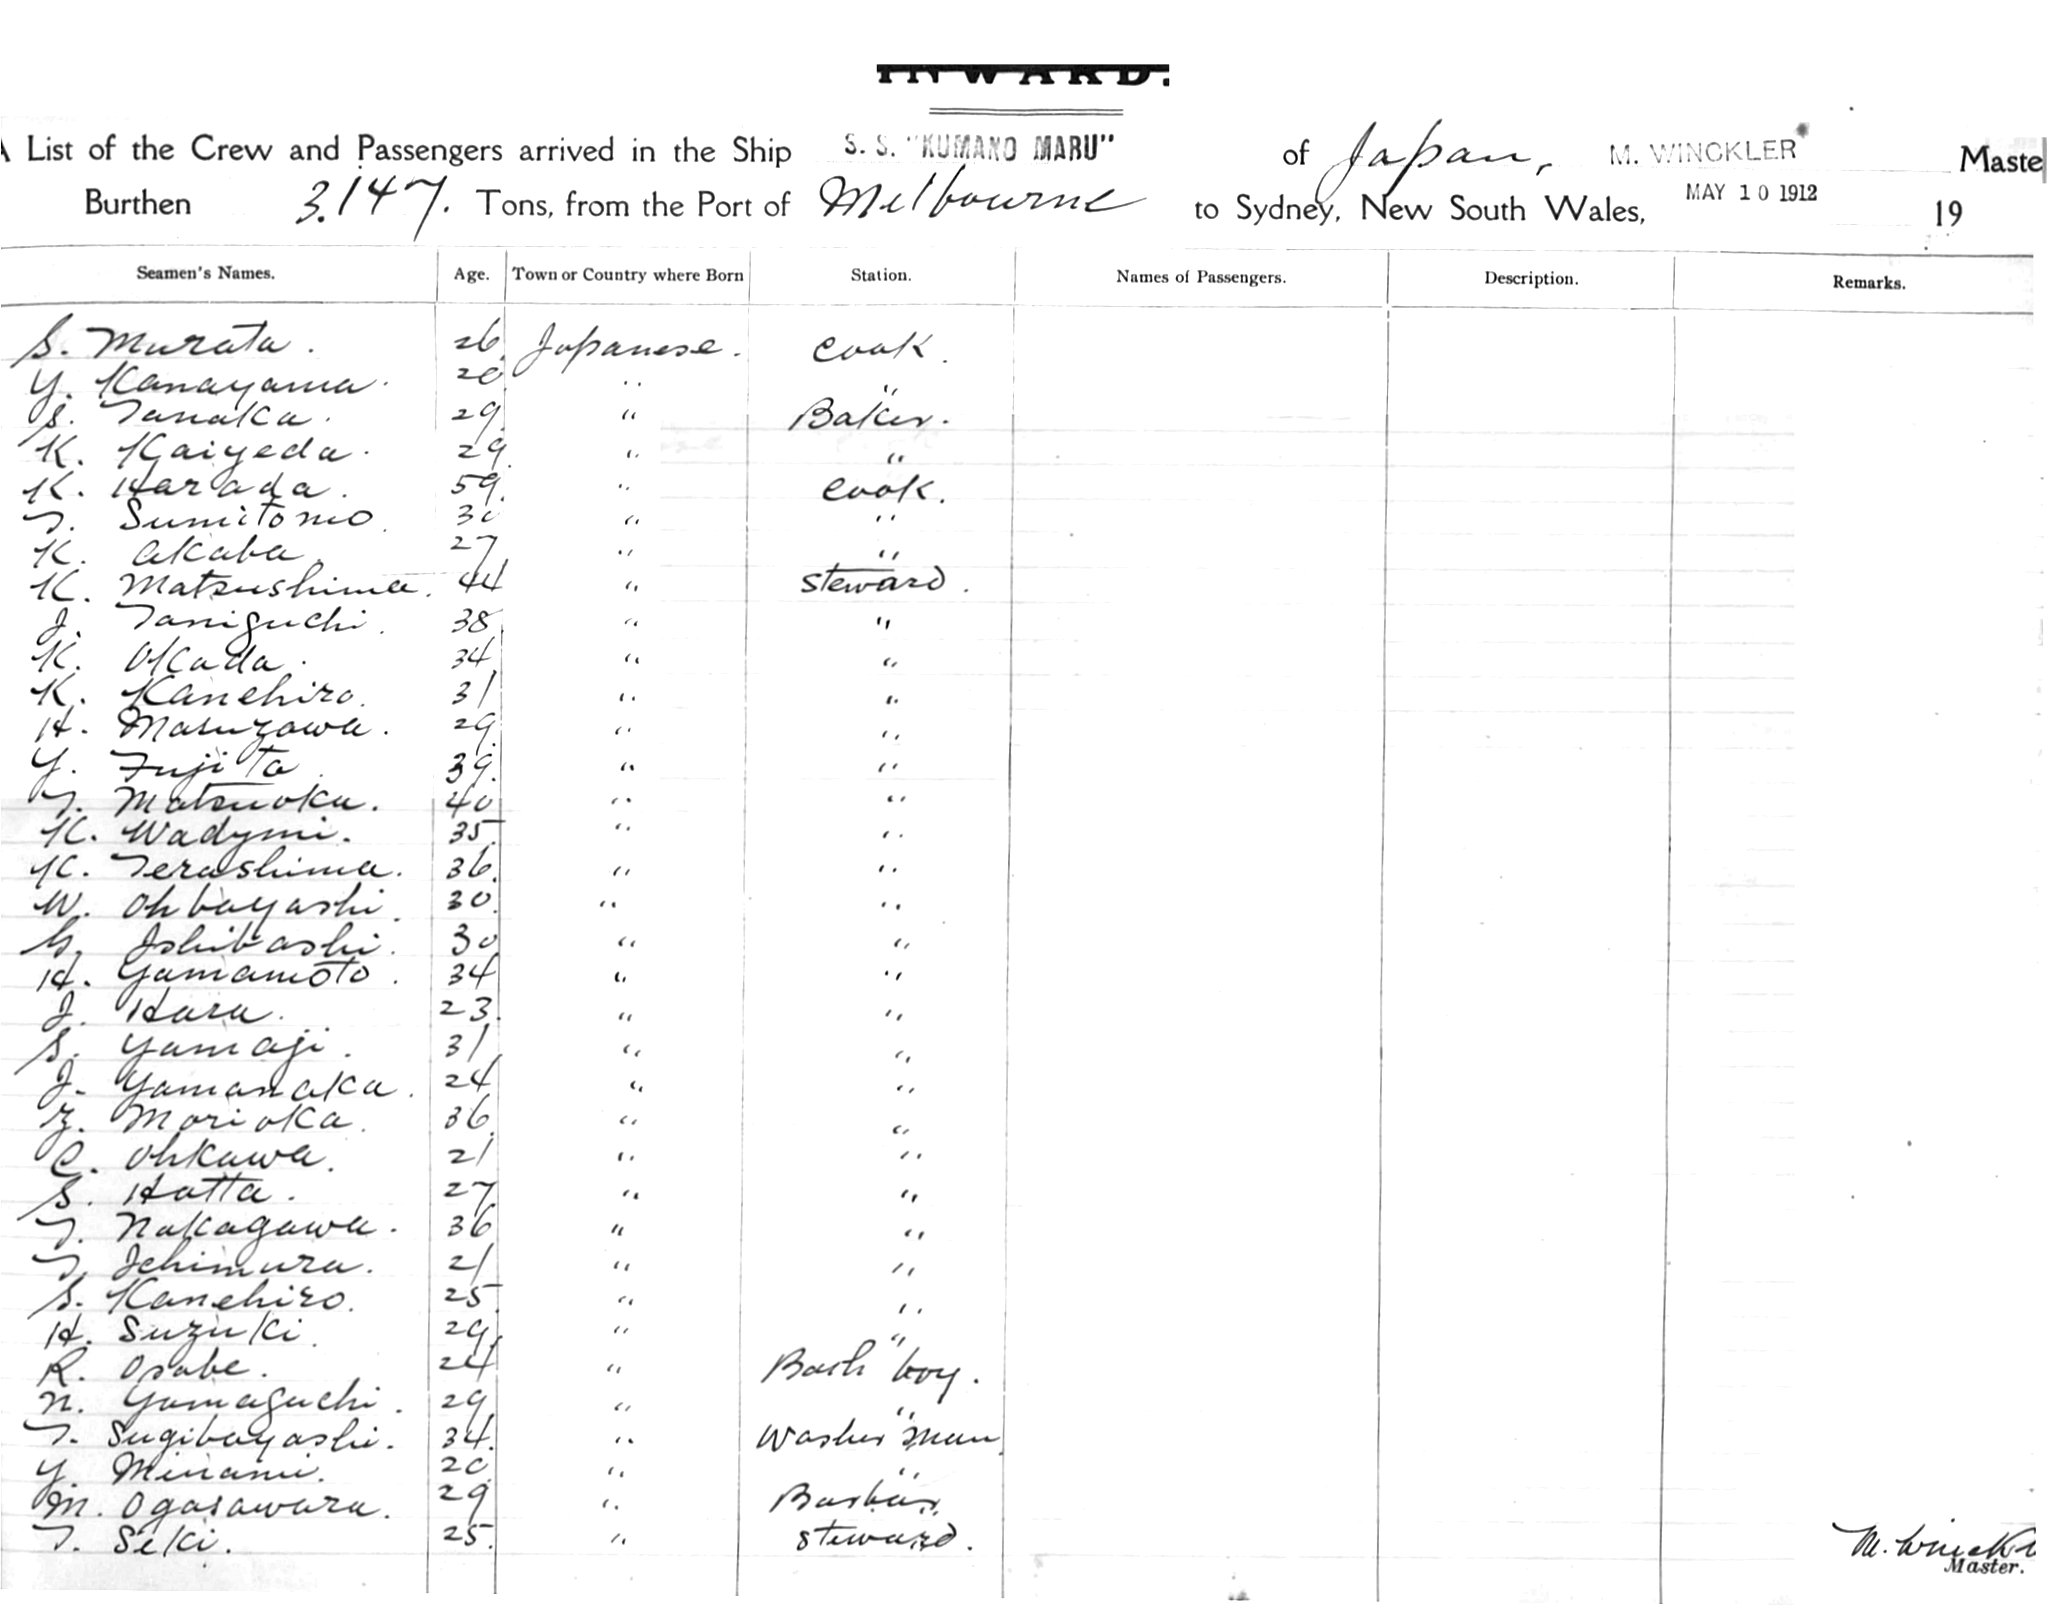 INWARD.
A List of the Crew and Passengers arrived in the Ship S. S. "KUMANO MARU" of Japan, M. WINCKLER Maste
Burthen 3,147. Tons, from the Port of Melbourne to Sydney, New South Wales, MAY 10 1912 19
Seamen's Names. Age. Town or Country where Born Station. Names of Passengers. Description. Remarks.
S. Murata. 26 Japanese. Cook.
Y. Kanayama. 20 " "
S. Tanaka. 29 " Baker.
K. Kaiyeda. 29 " "
K. Harada. 59. " Cook.
T. Sumitomo. 30 " "
K. Akaba 27 " "
K. Matsushima. 44 " Steward.
J. Taniguchi. 38 " "
K. Okada. 34 " "
K. Kanehiro. 31 " "
H. Maruzawa. 29 " "
Y. Fujita 39. " "
T. Matsuoka. 40 " "
K. Wadymi. 35 " "
K. Terashima. 36. " "
W. Ohbayashi. 30. " "
G. Ishibashi. 30 " "
H. Yamamoto. 34 " "
J. Hara. 23. " "
S. Yamaji. 31 " "
J. Yamanaka. 24 " "
Z. Morioka. 36. " "
C. Ohkawa. 21 " "
S. Hatta. 27 " "
T. Nakagawa. 36 " "
T. Ichimura. 21 " "
S. Kanehiro. 25. " "
H. Suzuki. 29 " "
R. Osabe. 24 " Bath boy.
N. Yamaguchi. 29 " "
T. Sugibayashi. 34. " Washer man
Y. Minami. 20 " "
M. Ogasawara. 29 " Barbar.
T. Seki. 25. " Steward.
M. Winckl
Master.